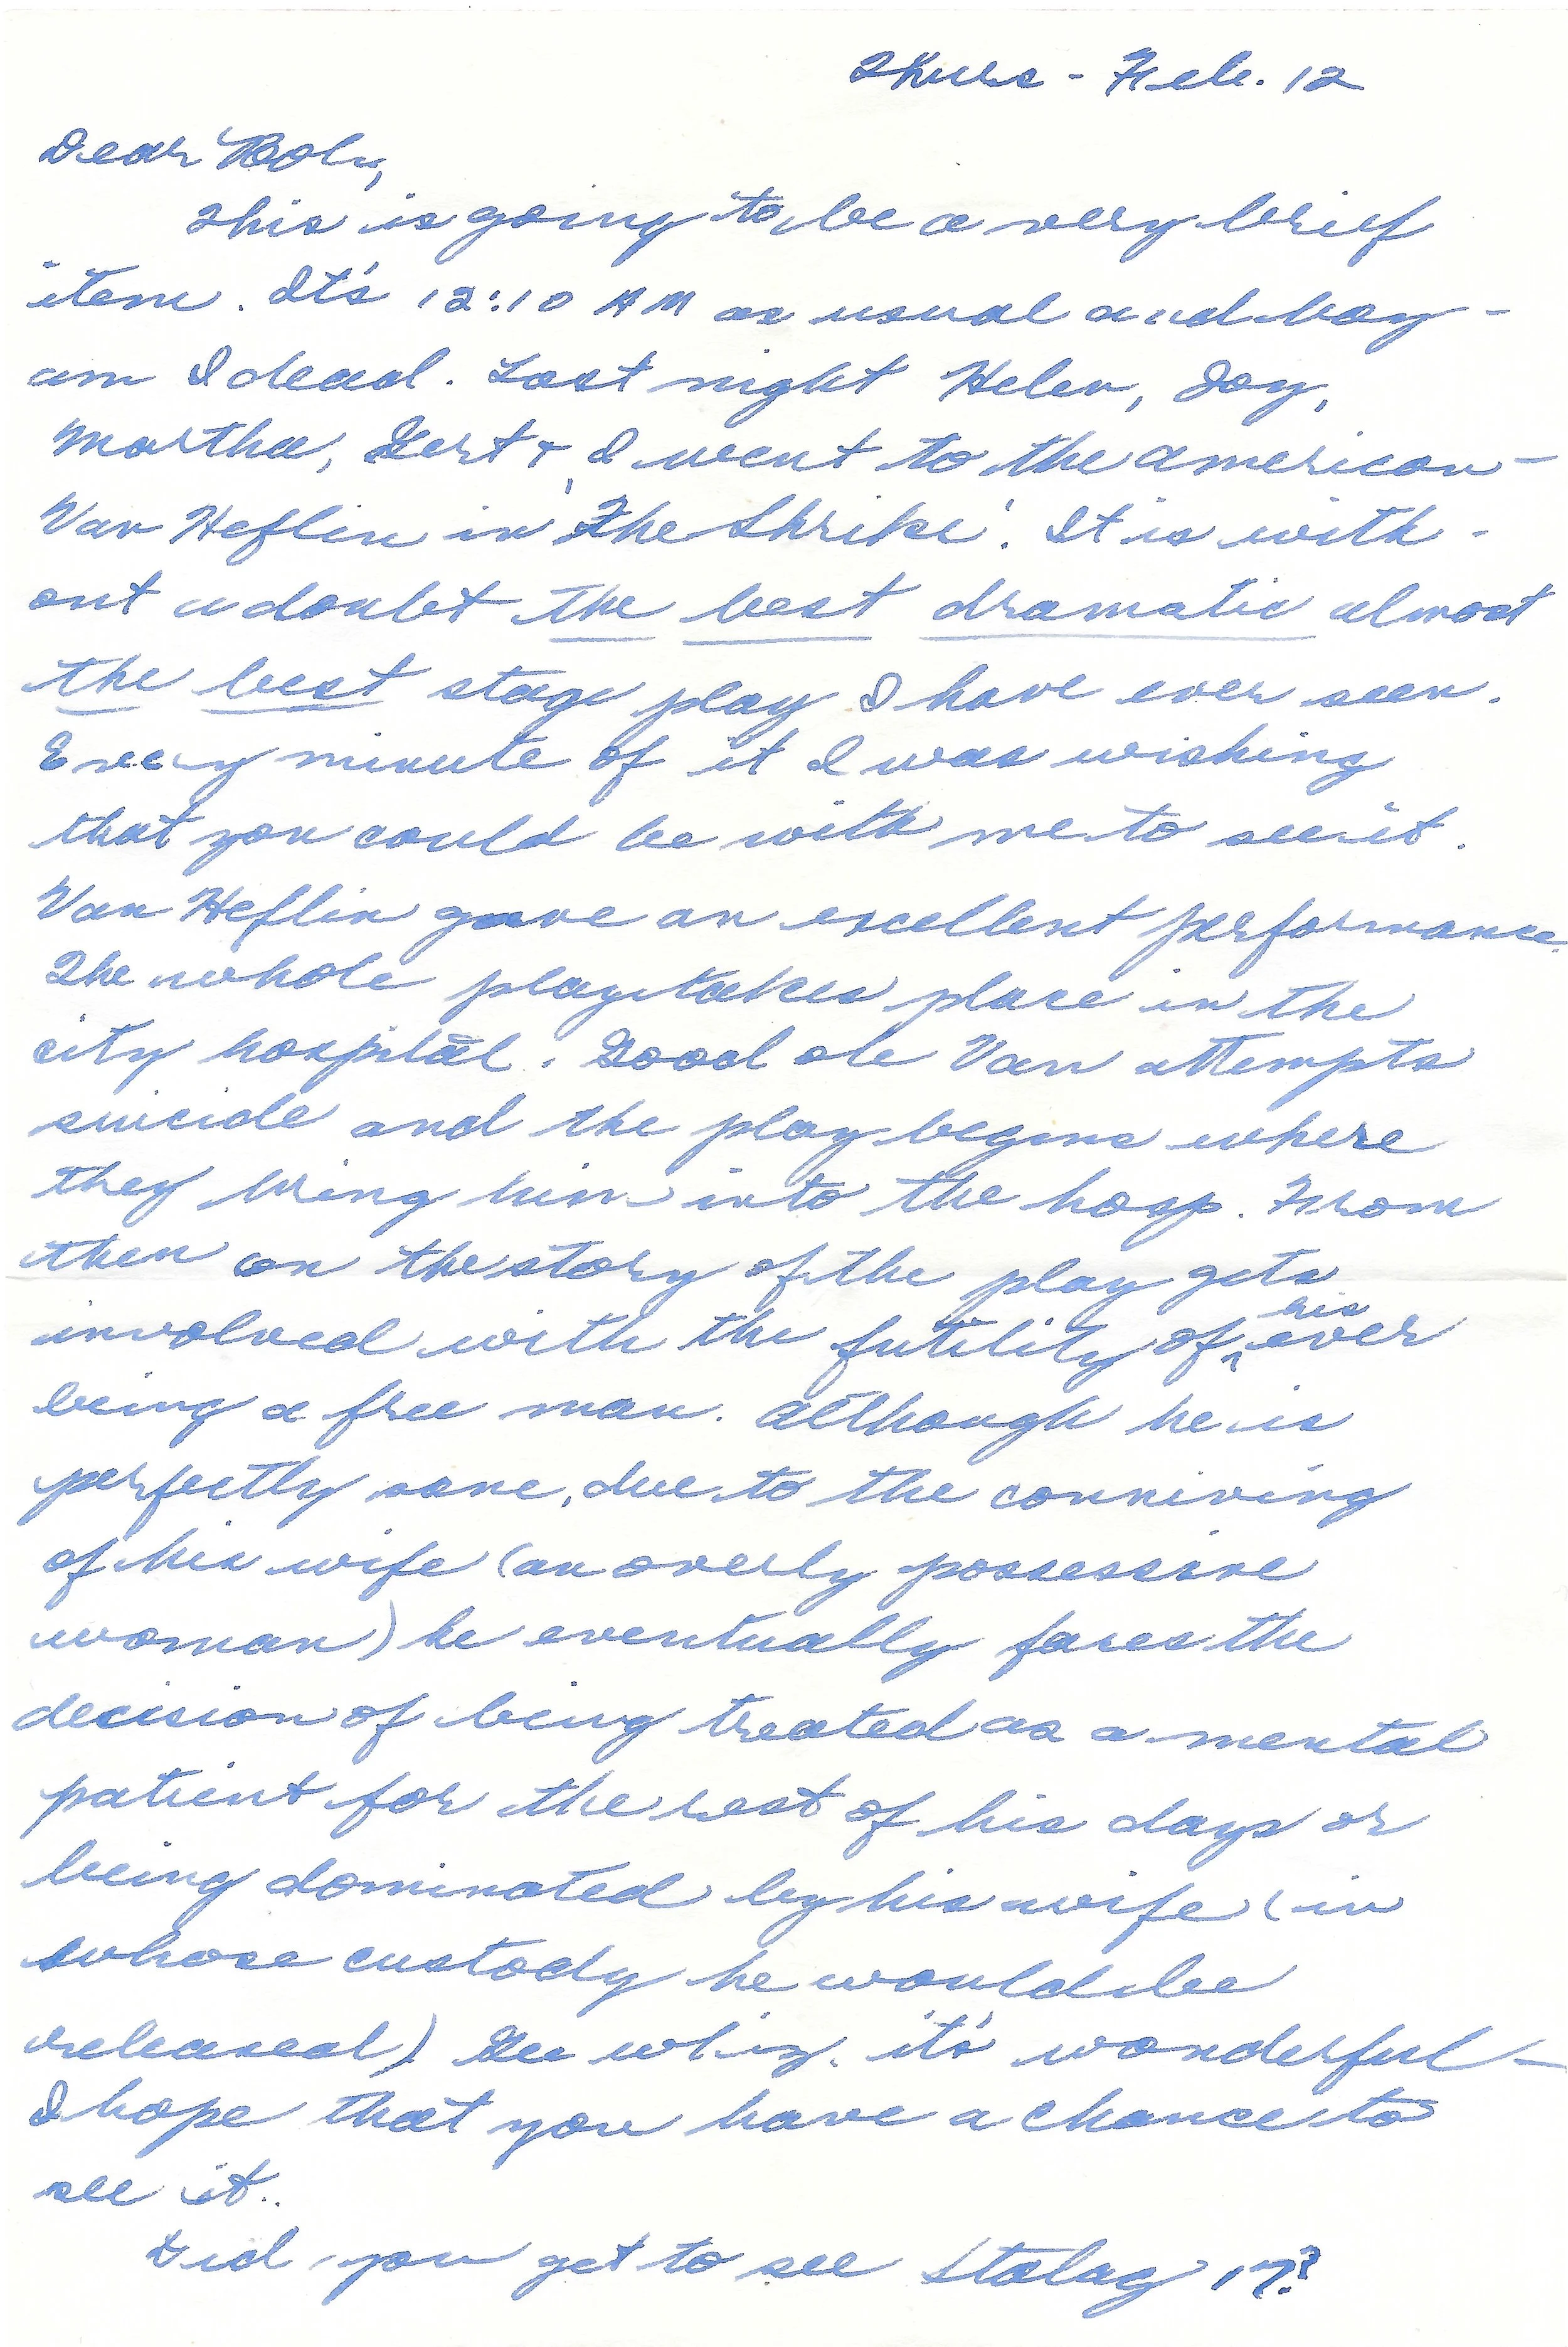 Thurs - Feb. 12
Dear Roly,
This is going to be a very brief
item. It's 12:10 AM as usual and boy -
am I dead. Last night Helen, Joy,
Martha, Gert & I went to the American -
Van Heflin in 'The Shrike'. It is with-
out a doubt the best dramatic almost
the best stage play I have ever seen.
Every minute of it I was wishing
that you could be with me to see it.
Van Heflin gave an excellent performance.
The whole play takes place in the
city hospital. Good ole Van attempts
suicide and the play begins where
they bring him into the hosp. From
then on the story of the play gets
involved with the futility of his ever
being a free man. Although he is
perfectly sane, due to the conniving
of his wife (an overly possessive
woman) he eventually faces the
decision of being treated as a mental
patient for the rest of his days or
being dominated by his wife (in
whose custody he would be
released). Gee whiz. it's wonderful -
I hope that you have a chance to
see it.
Did you get to see Stalag 17?